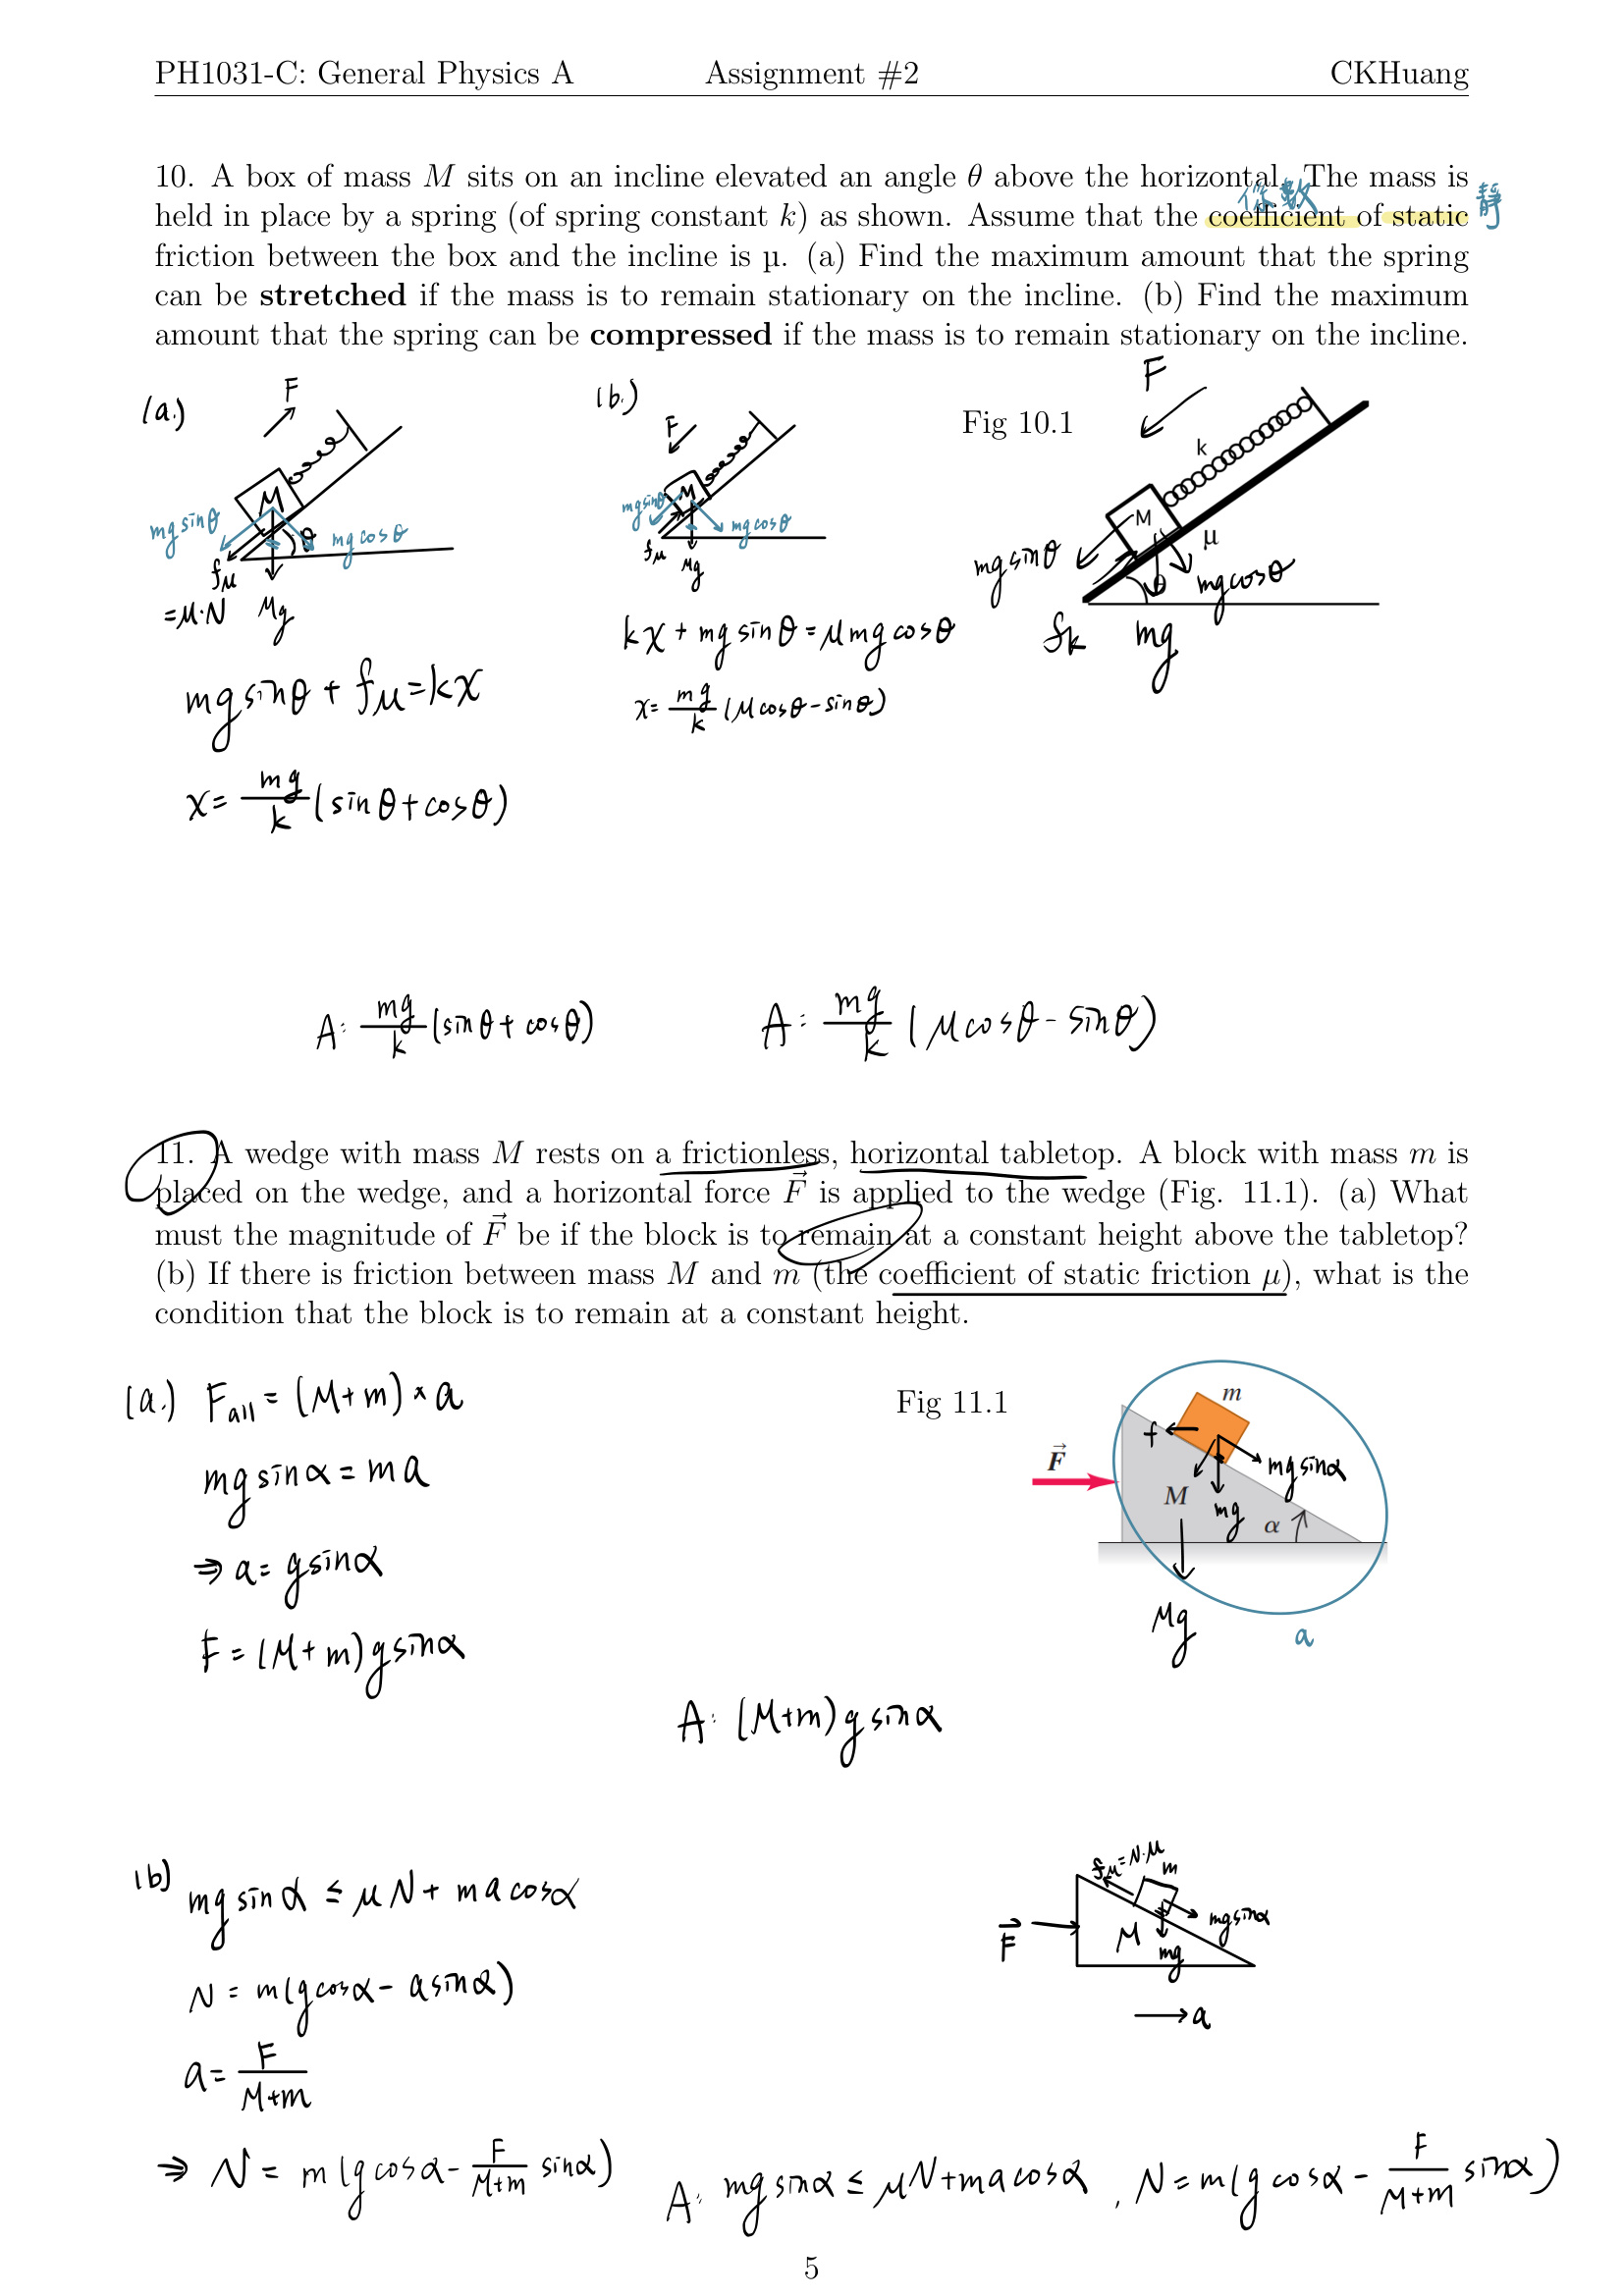 PH1031-C: General Physics A Assignment #2 CKHuang
10. A box of mass M sits on an incline elevated an angle θ above the horizontal. The mass is
係數
held in place by a spring (of spring constant k) as shown. Assume that the coefficient of static 靜
friction between the box and the incline is µ. (a) Find the maximum amount that the spring
can be stretched if the mass is to remain stationary on the incline. (b) Find the maximum
amount that the spring can be compressed if the mass is to remain stationary on the incline.
(a.)
F
M
mg sinθ
θ
mg cosθ
fμ
=μ·N
Mg
mg sinθ + fμ = kx
x = mg/k (sinθ + cosθ)
(b.)
F
M
mg sinθ
mg cosθ
fμ
Mg
kx + mg sinθ = μmg cosθ
x = mg/k (μcosθ - sinθ)
Fig 10.1
F
k
M
μ
mg sinθ
θ
mg cosθ
fk
mg
A: mg/k (sinθ + cosθ)
A: mg/k (μcosθ - sinθ)
11. A wedge with mass M rests on a frictionless, horizontal tabletop. A block with mass m is
placed on the wedge, and a horizontal force F⃗ is applied to the wedge (Fig. 11.1). (a) What
must the magnitude of F⃗ be if the block is to remain at a constant height above the tabletop?
(b) If there is friction between mass M and m (the coefficient of static friction μ), what is the
condition that the block is to remain at a constant height.
(a.) Fall = (M+m) × a
mg sinα = ma
⇒ a = g sinα
F = (M+m) g sinα
Fig 11.1
m
f
F⃗
mg sinα
M
mg
α
Mg
a
A: (M+m) g sinα
(b) mg sinα ≤ μN + ma cosα
N = m(g cosα - a sinα)
a = F/(M+m)
⇒ N = m(g cosα - F/(M+m) sinα)
fμ=N·μ
m
F⃗
M
mg sinα
mg
→ a
A: mg sinα ≤ μN + ma cosα , N = m(g cosα - F/(M+m) sinα)
5